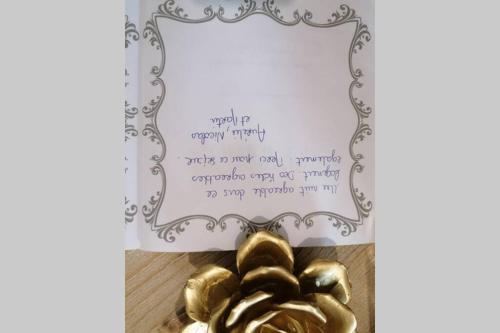 Une nuit agréable dans ce
logement. Des hôtes agréables
également. Merci pour ce séjour.
Aurélie, Nicolas
et Martin